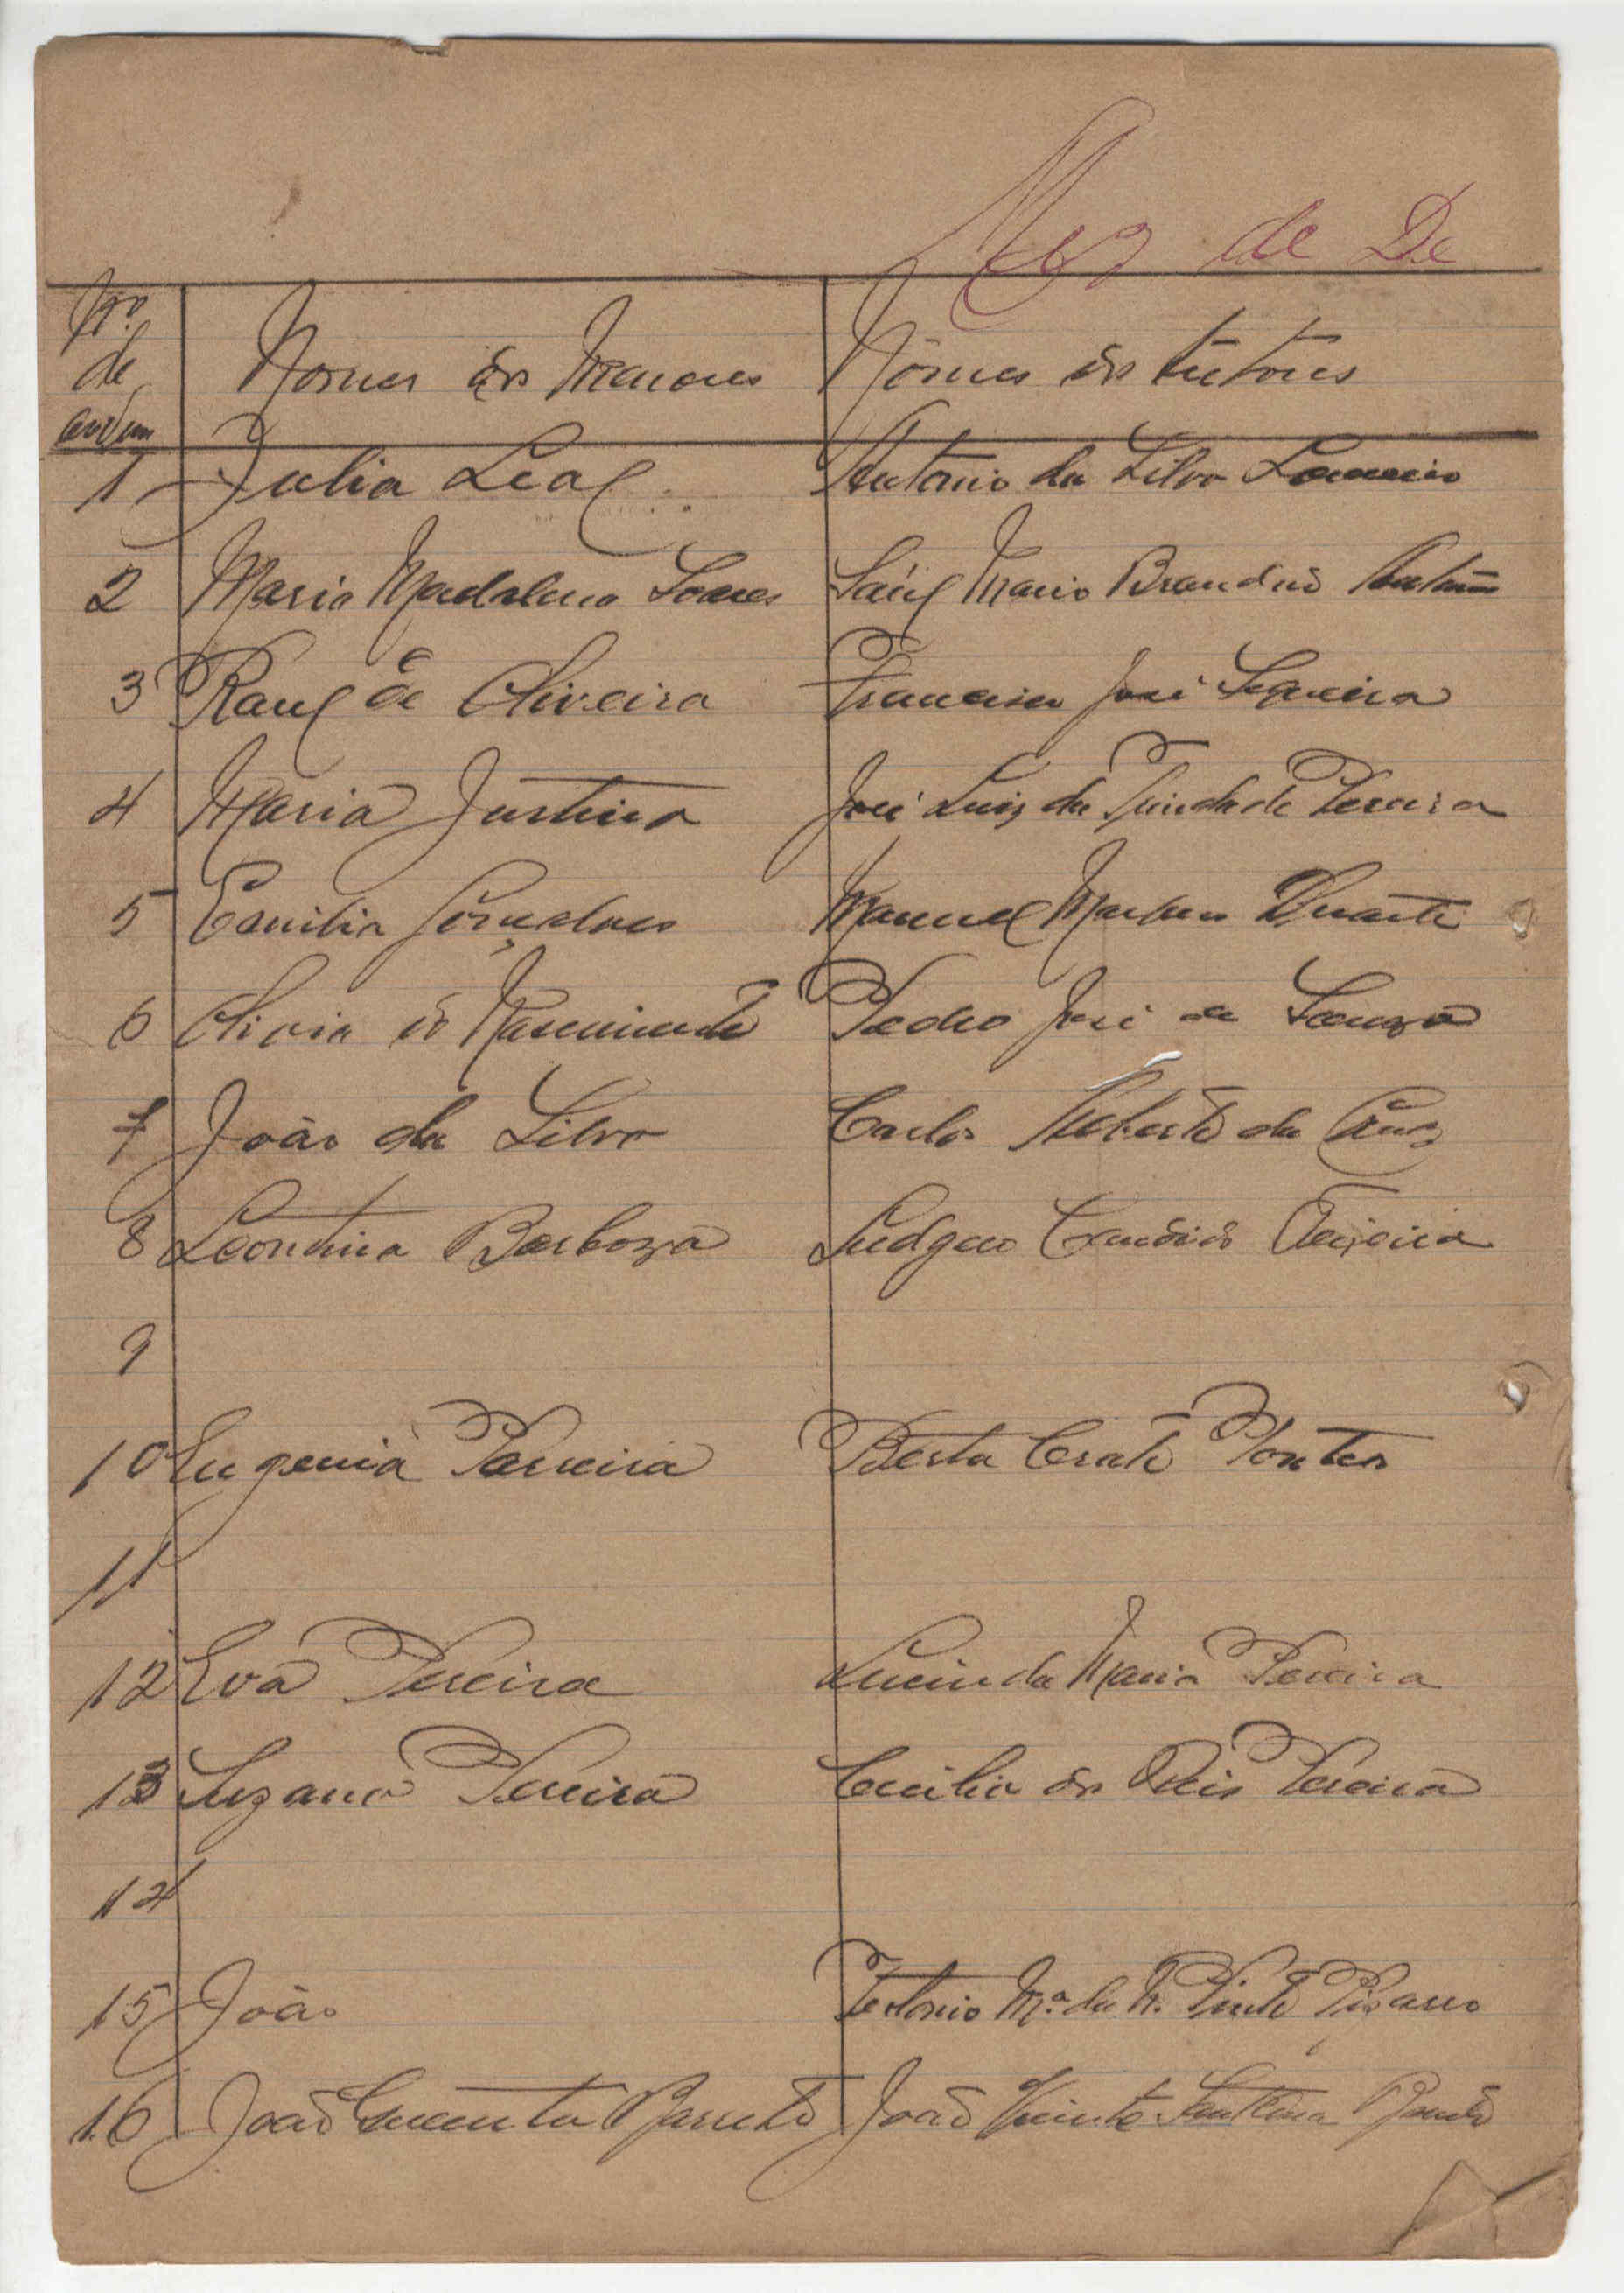 Mez de De
Nº de ordem Nomes dos Menores Nomes dos tutores
1 Julia Leal Antonio da Silva Loureiro
2 Maria Madalena Soares Saúl Mario Brandão
3 Raul de Oliveira Francisco José Sequeira
4 Maria Justina José Luiz da Trindade Pereira
5 Emilia Gonçalves Manuel Martins Duarte
6 Olivia do Nascimento Pedro José de Souza
7 João da Silva Carlos Roberto da Cruz
8 Leontina Barboza Ludgero Candido Teixeira
9
10 Eugenia Parreira Berta Pontes
11
12 Eva Pereira Lucinda Maria Pereira
13 Suzana Pereira Cecilia dos Reis Pereira
14
15 João Teotonio Mª da N. Pinto Pizarro
16 João Barreto João Vicente Sant'Ana Barreto